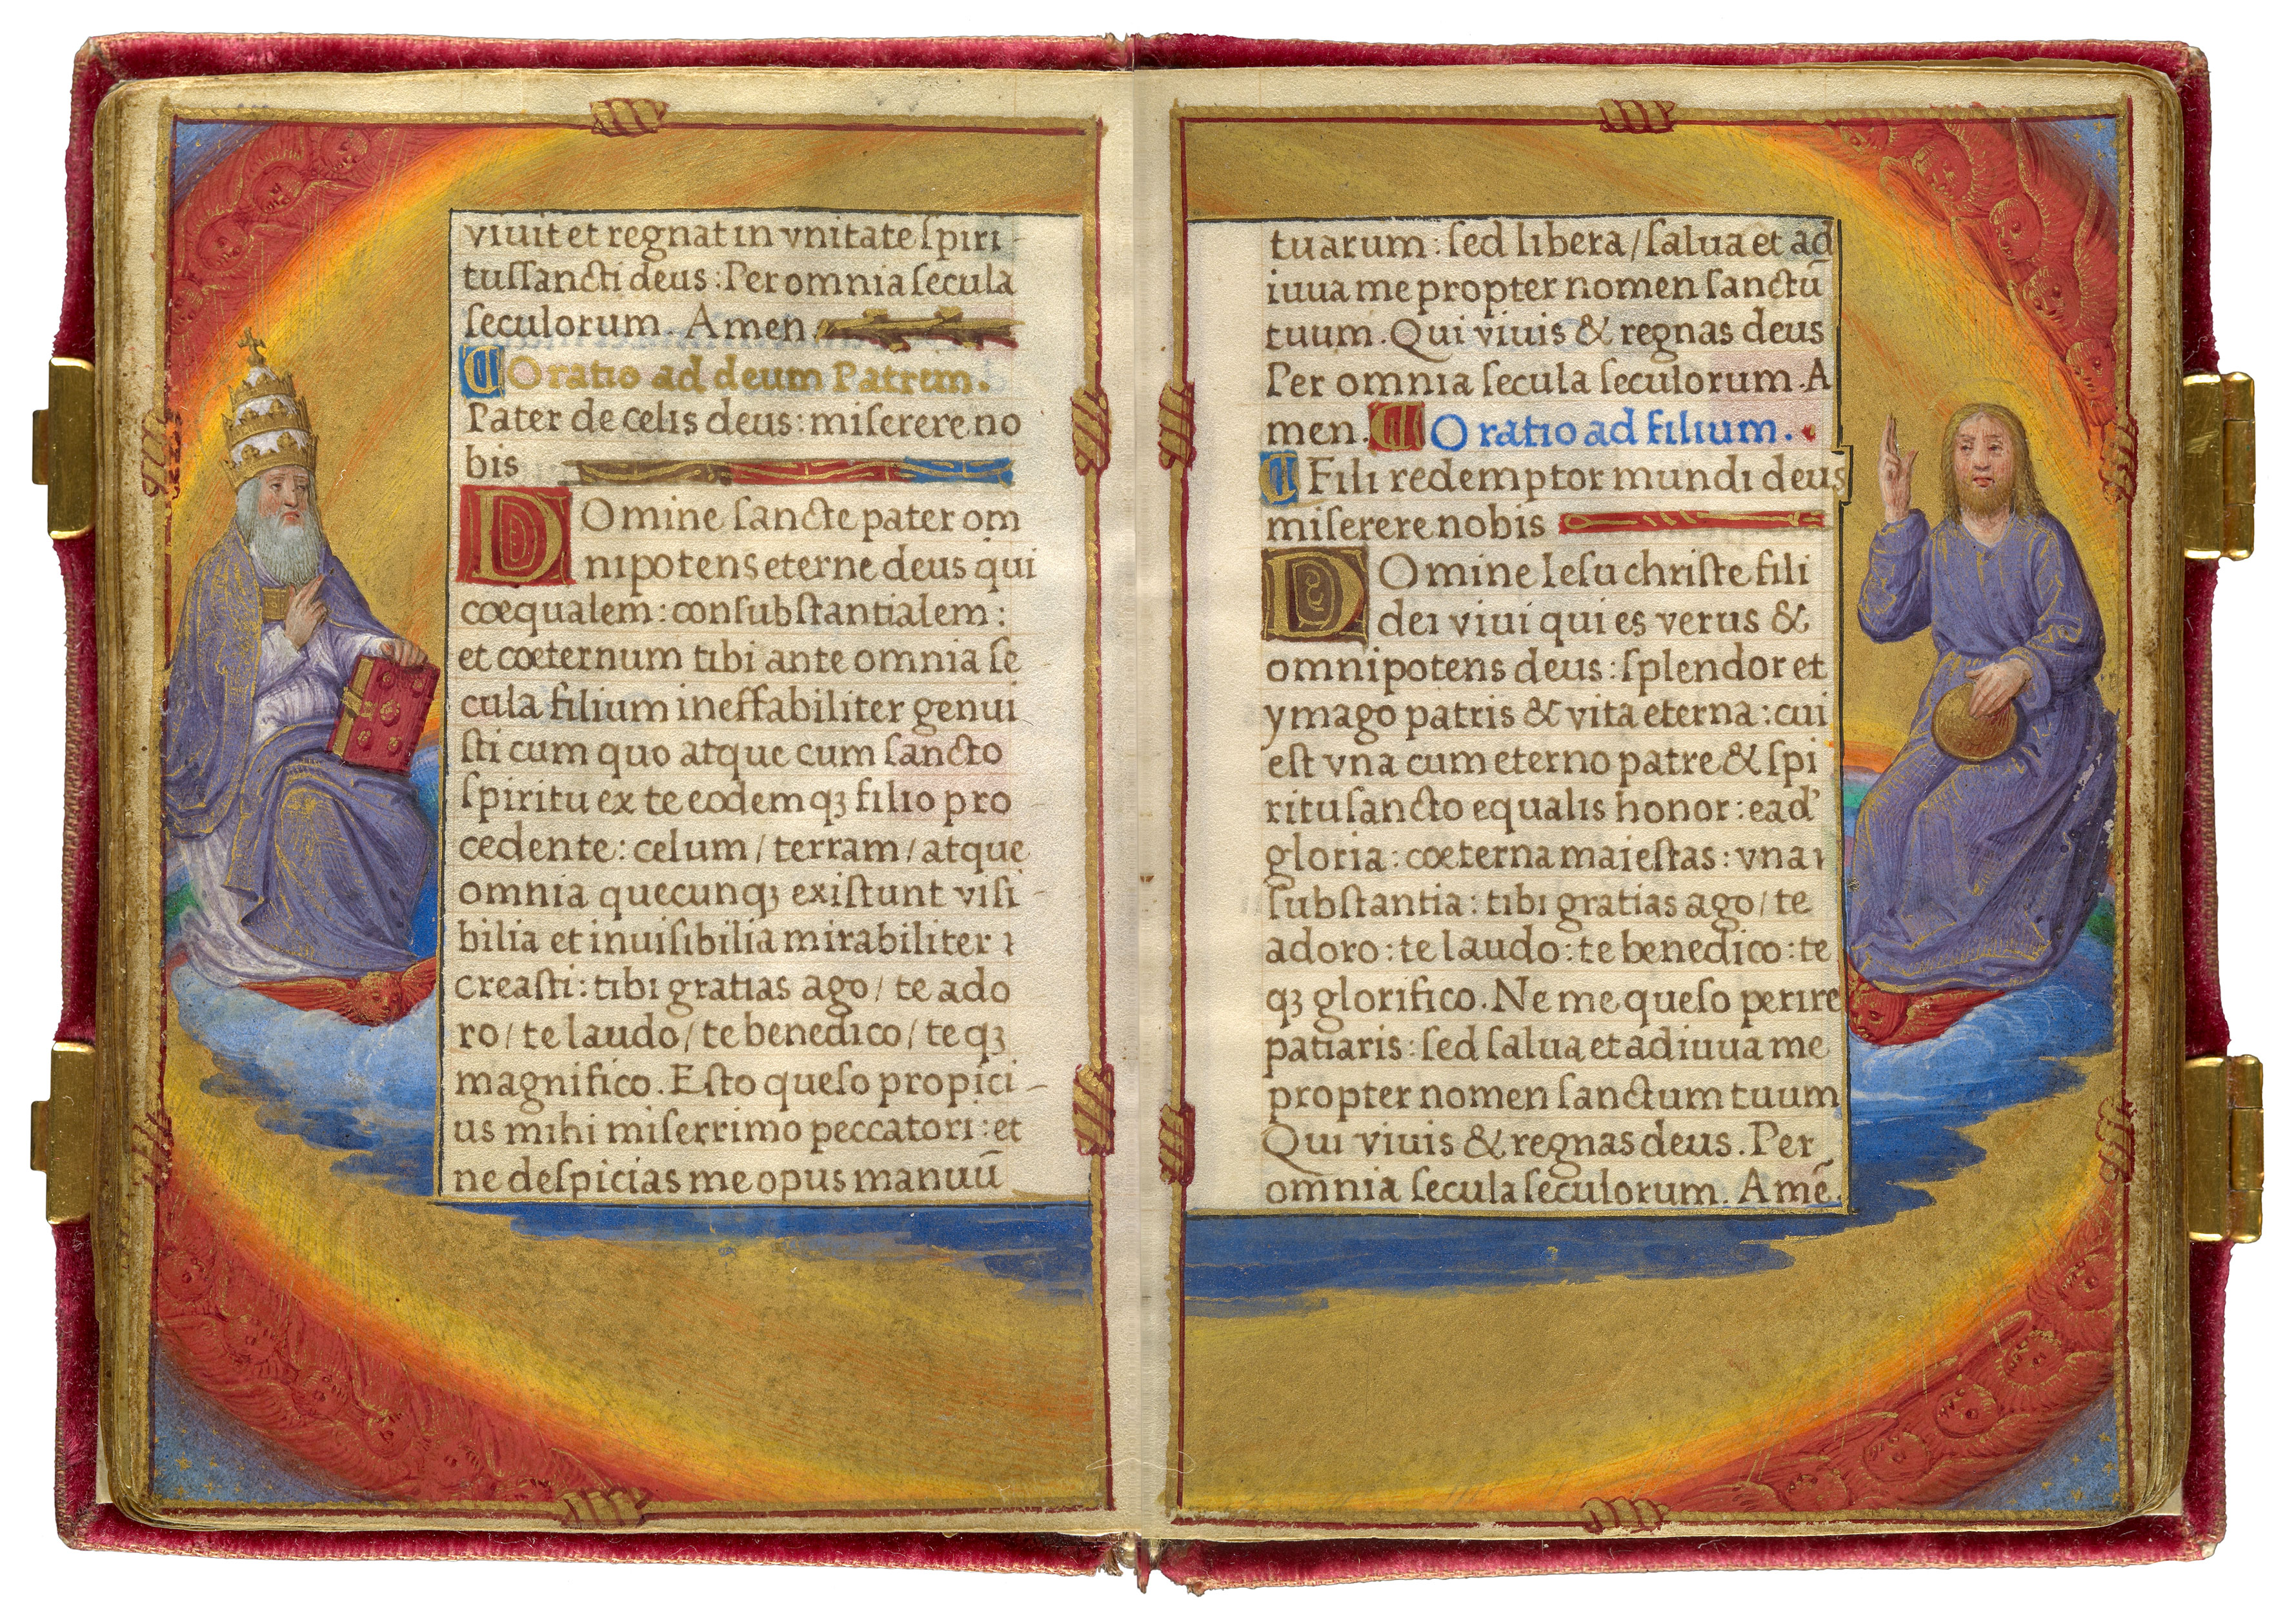 viuit et regnat in vnitate ſpiri-
tuſſancti deus: Per omnia ſecula
ſeculorum. Amen
¶ Oratio ad deum Patrem.
Pater de celis deus: miſerere no
bis
Domine ſancte pater om
nipotens eterne deus qui
coequalem: conſubſtantialem:
et coeternum tibi ante omnia ſe-
cula filium ineffabiliter genui-
ſti cum quo atque cum ſancto
ſpiritu ex te eodemqꝫ filio pro-
cedente: celum / terram / atque
omnia quecunqꝫ exiſtunt viſi-
bilia et inuiſibilia mirabiliter ⁊
creaſti: tibi gratias ago / te ado
ro / te laudo / te benedico / te qꝫ
magnifico. Eſto queſo propici-
us mihi miſerrimo peccatori: et
ne deſpicias me opus manuū
tuarum: ſed libera / ſalua et ad
iuua me propter nomen ſanctū
tuum. Qui viuis & regnas deus
Per omnia ſecula ſeculorum. A
men. ¶ Oratio ad filium.
¶ Fili redemptor mundi deus
miſerere nobis
Domine Ieſu chriſte fili
dei viui qui es verus &
omnipotens deus: ſplendor et
ymago patris & vita eterna: cui
eſt vna cum eterno patre & ſpi
ritu ſancto equalis honor: ead'
gloria: coeterna maieſtas: vna ⁊
ſubſtantia: tibi gratias ago / te
adoro: te laudo: te benedico: te
qꝫ glorifico. Ne me queſo perire
patiaris: ſed ſalua et adiuua me
propter nomen ſanctum tuum
Qui viuis & regnas deus. Per
omnia ſecula ſeculorum. Amē.